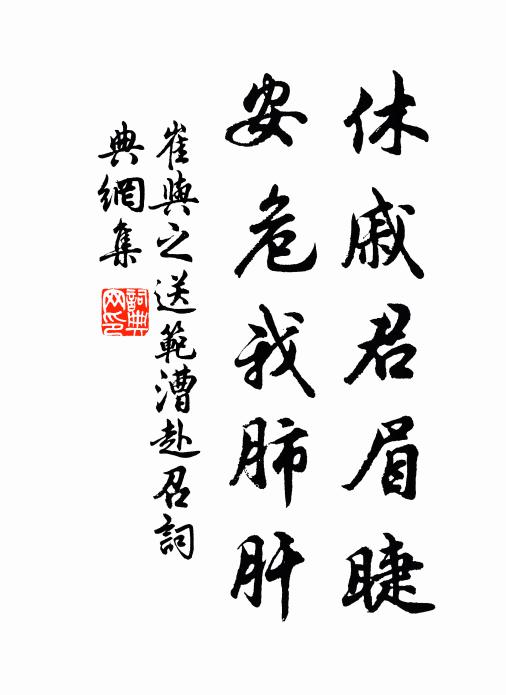 休戚君眉睫
安危我肺肝
崔與之送範漕赴召詞
典網集
詞典網印